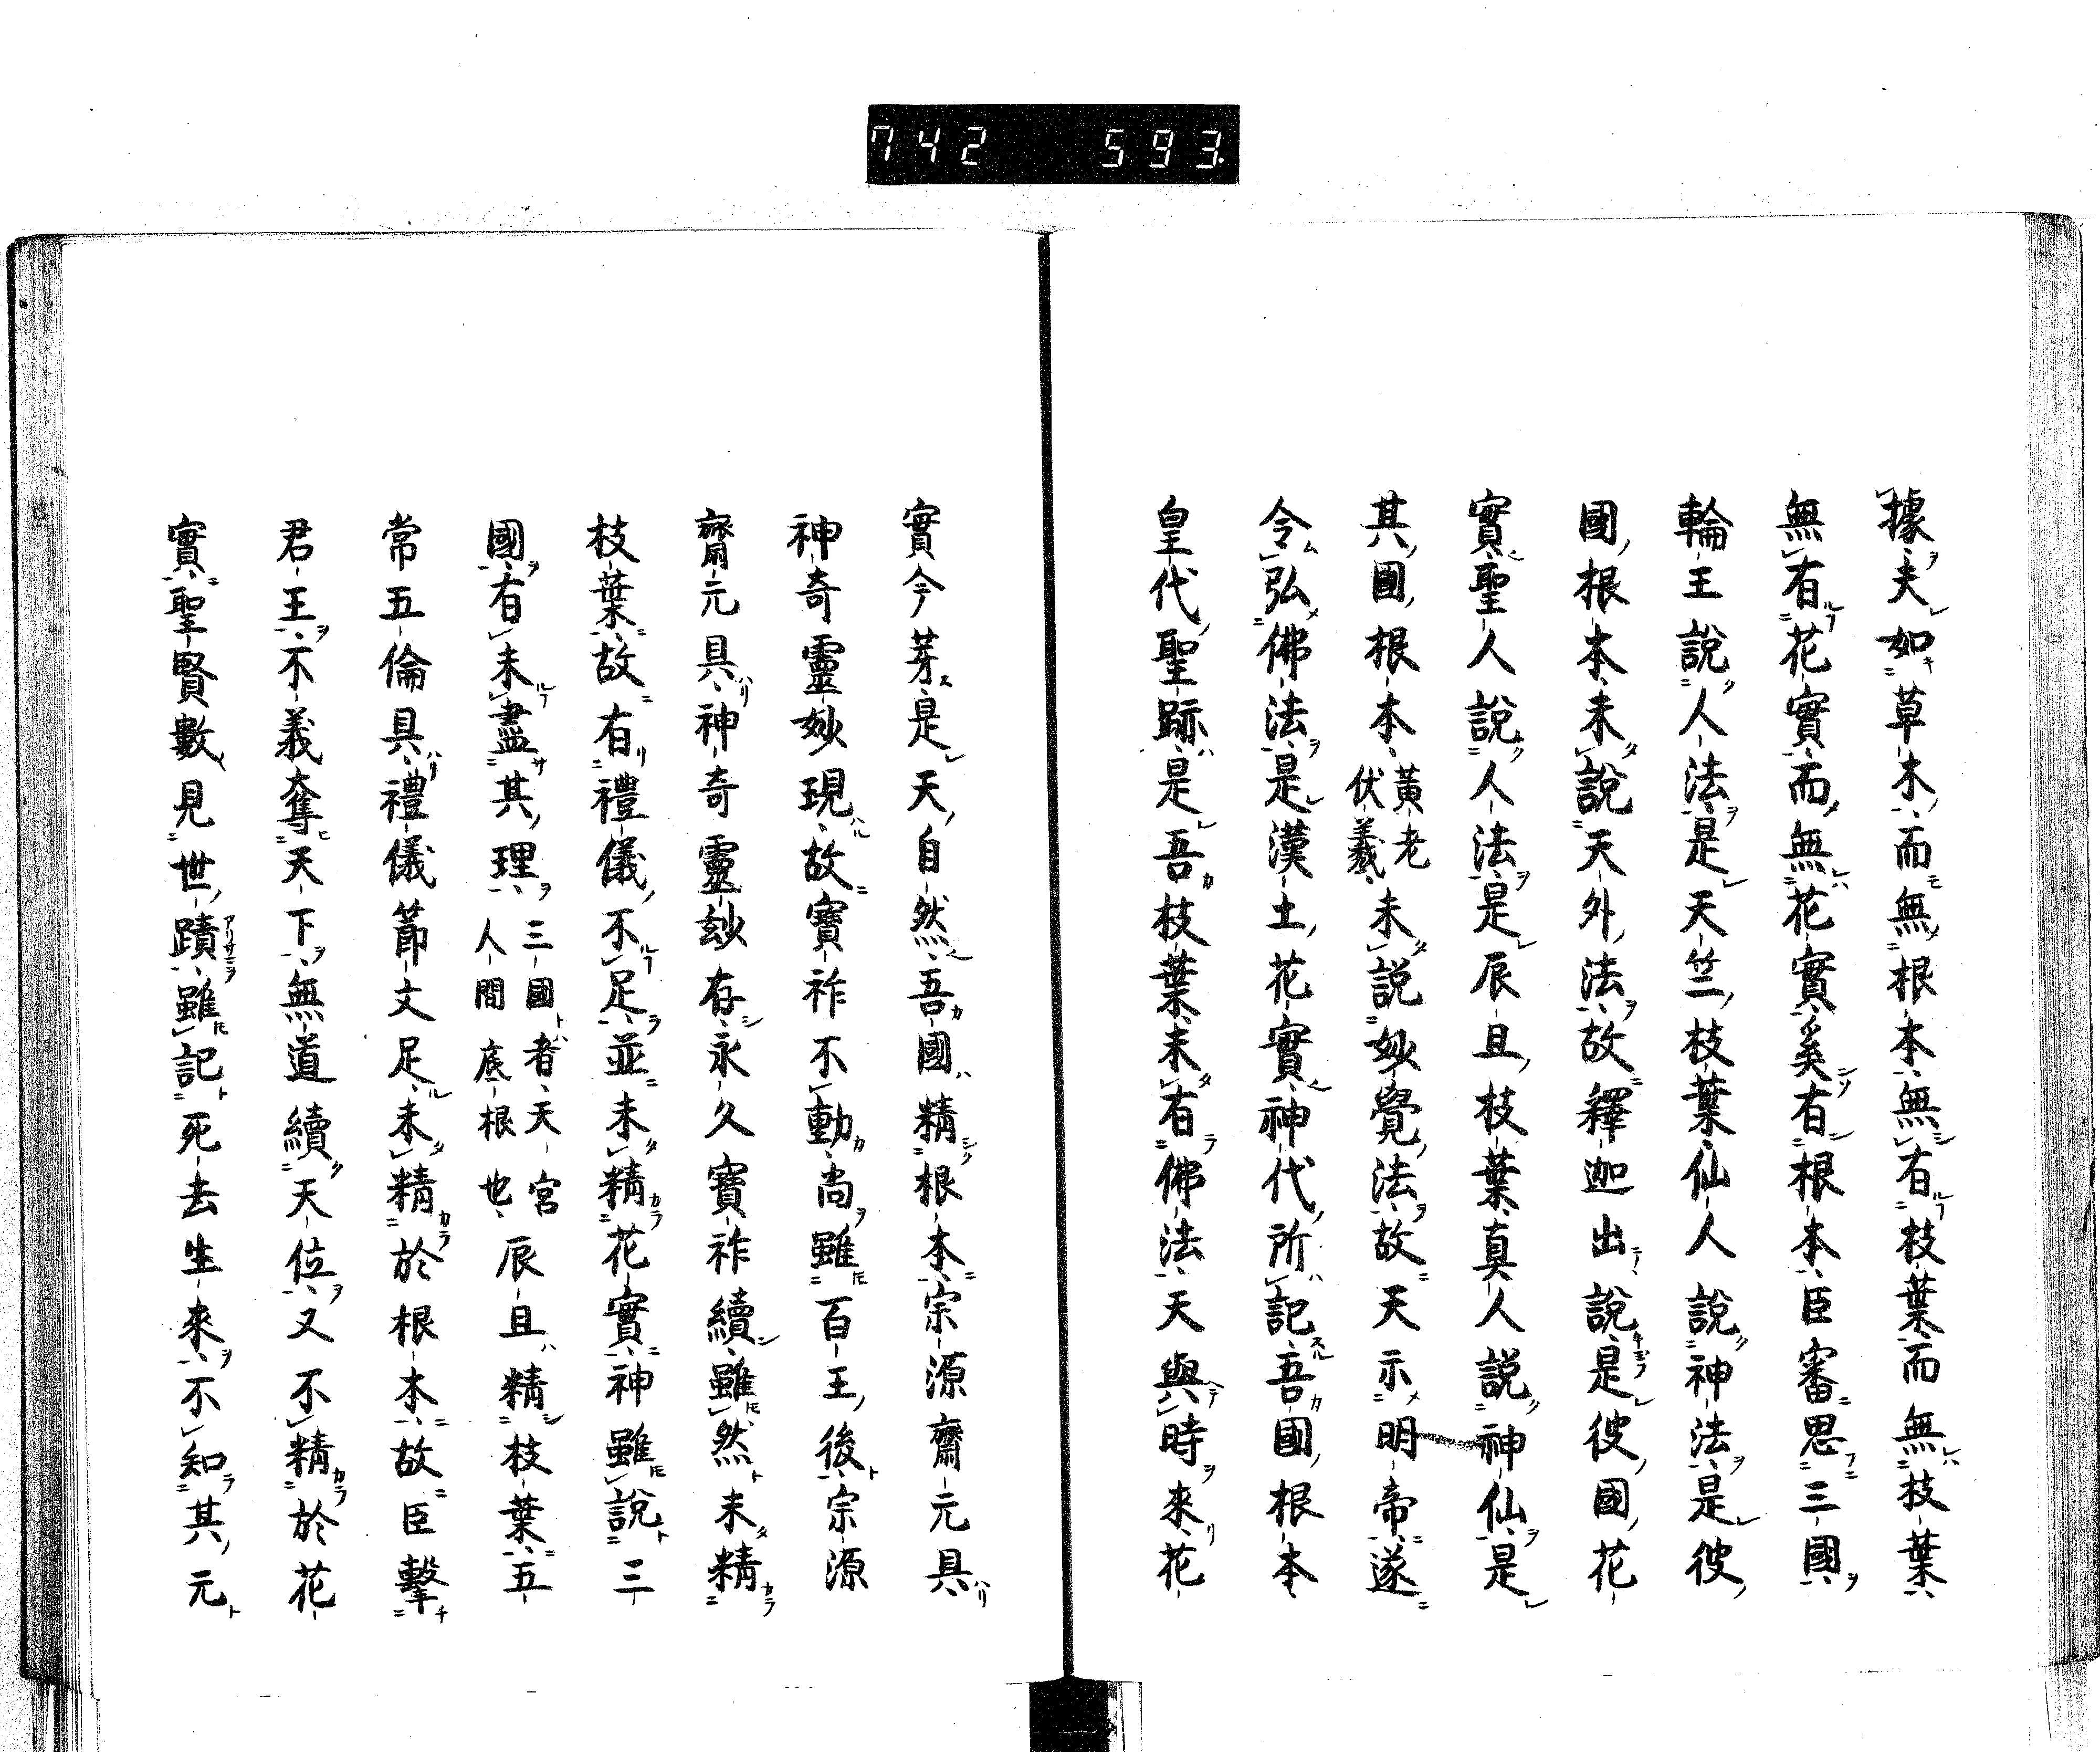 742 593.
據夫如草木而無根本無有枝葉而無枝葉
無有花實而無花實奚有根本臣審思三國
輪王說人法是天竺枝葉仙人說神法是彼
國根本未說天外法故釋迦出說是彼國花
實聖人說人法是辰且枝葉真人說神仙是
其國根本黃老伏羲未說妙覺法故天示明帝遂
令弘佛法是漢土花實神代所記吾國根本
皇代聖跡是吾枝葉未有佛法天與時來花
實今芽是天自然吾國精根本宗源齋元具
神奇靈妙現故寶祚不動尚雖百王後宗源
齋元具神奇靈玅存永久寶祚續雖然未精
枝葉故有禮儀不足並未精花實神雖說三
國有未盡其理三國者天宮人間底根也辰且精枝葉五
常五倫具禮儀節文足未精於根本故臣擊
君王不義奪天下無道續天位又不精於花
實聖賢數見世蹟雖記死去生來不知其元